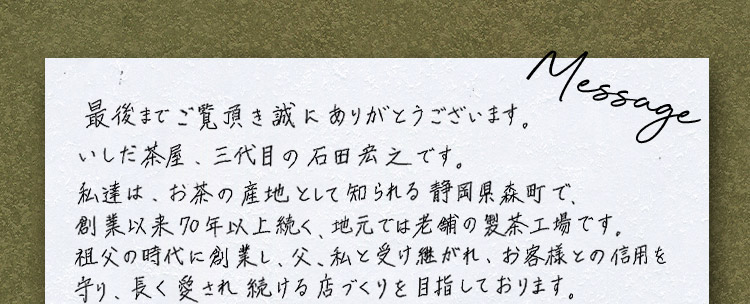 Message
最後までご覧頂き誠にありがとうございます。
いしだ茶屋、三代目の石田宏之です。
私達は、お茶の産地として知られる静岡県森町で、
創業以来70年以上続く、地元では老舗の製茶工場です。
祖父の時代に創業し、父、私と受け継がれ、お客様との信用を
守り、長く愛され続ける店づくりを目指しております。